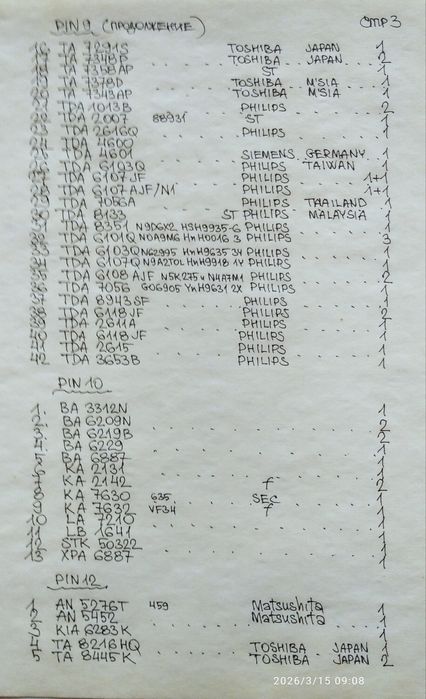 PIN 9 (ПРОДОЛЖЕНИЕ) стр 3
TA 7291S TOSHIBA JAPAN 1
TA 7348P TOSHIBA JAPAN 2
TA 7358AP ST 1
TA 7378P TOSHIBA M'SIA 1
TA 7343AP TOSHIBA M'SIA 1
TDA 1013B PHILIPS 2
TDA 2007 88931 ST 1
TDA 2616Q PHILIPS 1
TDA 4600
TDA 4601 SIEMENS GERMANY 1
TDA 6103Q PHILIPS TAIWAN 1
TDA 6107JF PHILIPS 1+1
TDA 6107AJF/N1 PHILIPS 1+1
TDA 7056A PHILIPS THAILAND 1
TDA 8133 ST PHILIPS MALAYSIA 1
TDA 8351 N9D6X2 HSH9935-6 PHILIPS 1
TDA 6101Q N0A9M6 HnH0016 3 PHILIPS 3
TDA 6103Q N62995 HnH9635 34 PHILIPS
TDA 6107Q N9A2TOL HnH9918 1Y PHILIPS
TDA 6108 AJF N5K275 и N4A7M1 PHILIPS 2
TDA 7056 G06905 YnH9631 2X PHILIPS 1
TDA 8943SF PHILIPS 1
TDA 6118JF PHILIPS 2
TDA 2611A PHILIPS 1
TDA 6118JF PHILIPS 1
TDA 2615 PHILIPS 1
TDA 3653B PHILIPS 1
PIN 10
1. BA 3312N 1
2. BA 6209N 2
3. BA 6219B 2
4. BA 6229 1
5 BA 6887 1
6 KA 2131 1
7 KA 2142 f 2
8 KA 7630 635 SEC 1
9 KA 7632 VF34 f 1
10 LA 7210 1
11 LB 1641 1
12 STK 50322 1
13 XPA 6887 1
PIN 12
1 AN 5276T 459 Matsushita 1
2 AN 5452 Matsushita 1
3 KIA 6283K 1
4 TA 8216HQ TOSHIBA JAPAN 1
5 TA 8445K TOSHIBA JAPAN 2
2026/3/15 09:08